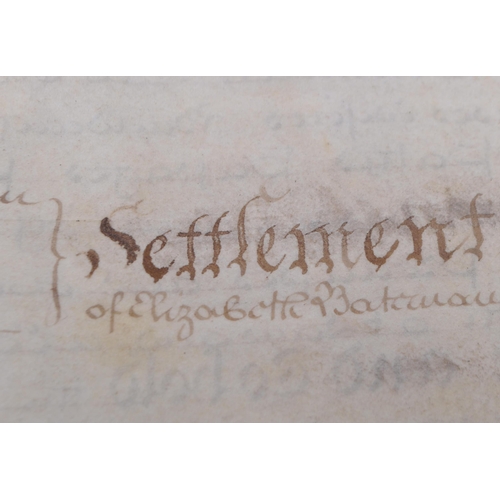 Settlement
of Elizabeth Bateman